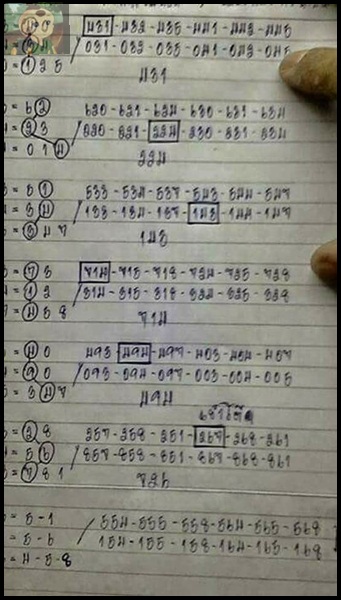 = 4 0 431-432-435-441-442-445
031-032-035-041-042-045
= 1 2 5
431
= 6 2 620-621-624-630-631-634
= 2 3 220-221-224-230-231-234
= 0 1 4
224
= 5 1 533-534-537-543-544-547
= 3 4 133-134-137-143-144-147
= 3 4 7
143
= 7 3 714-715-718-724-725-728
= 1 2 314-315-318-324-325-328
= 4 5 8
714
= 4 0 493-494-497-403-404-407
= 9 0 093-094-097-003-004-005
= 3 4 7
494
= 2 8 257-258-251-267-268-261
= 5 6 857-858-851-867-868-861
= 7 8 1
726
= 5-1 554-555-558-564-565-568
= 5-6 154-155-158-164-165-168
= 4-5-8